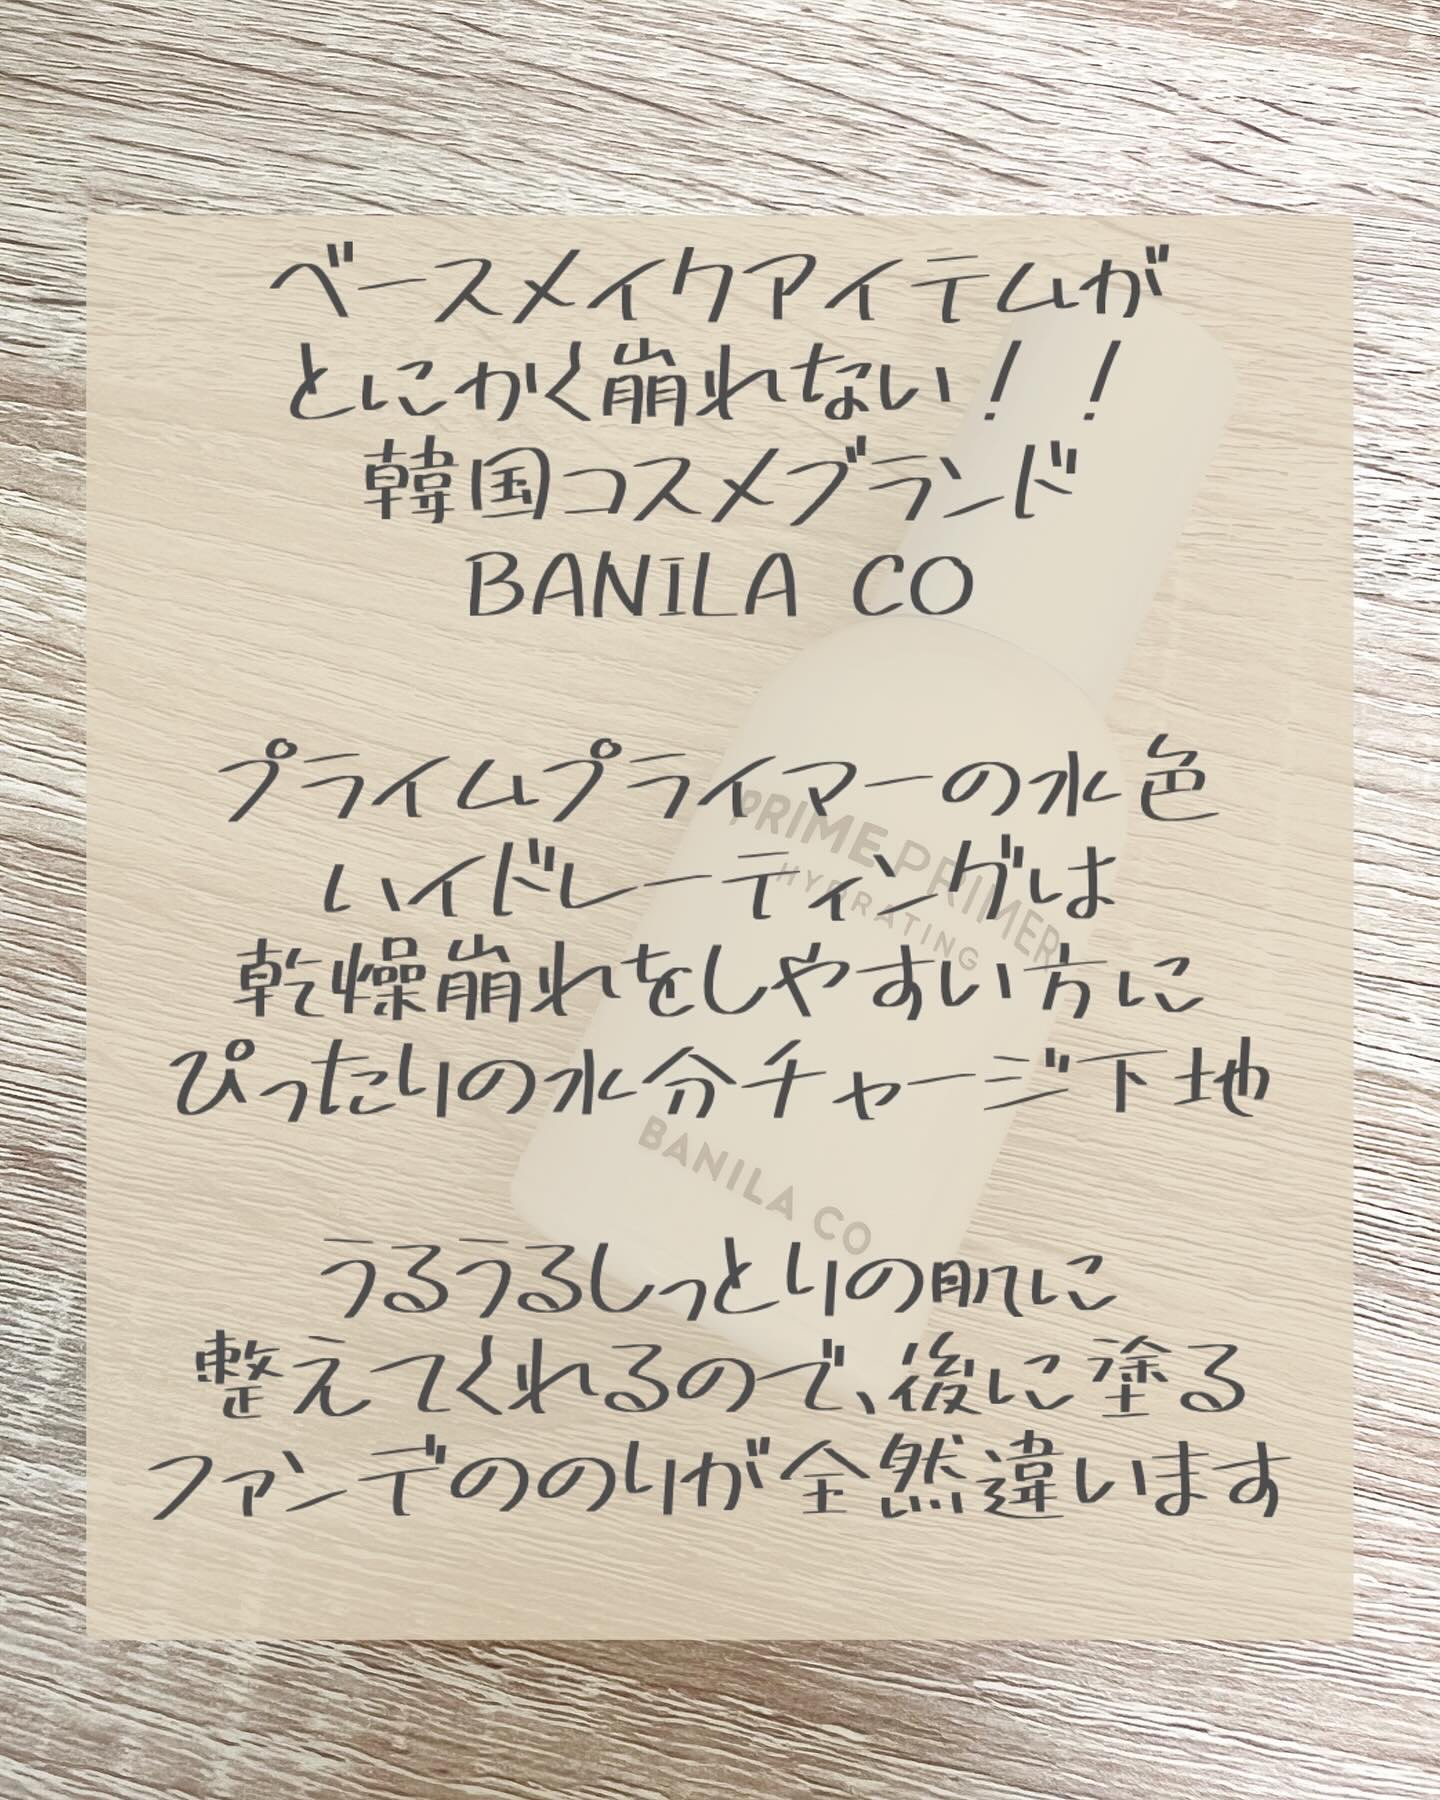 ベースメイクアイテムが
とにかく崩れない！！
韓国コスメブランド
BANILA CO
プライムプライマーの水色
ハイドレーティングは
乾燥崩れをしやすい方に
ぴったりの水分チャージ下地
うるうるしっとりの肌に
整えてくれるので、後に塗る
ファンデののりが全然違います
PRIME PRIMER
HYDRATING
BANILA CO